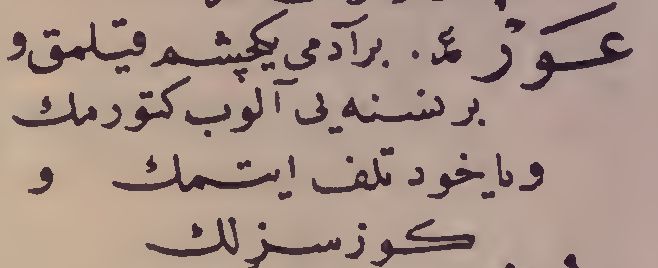 عَوَرْ ع. بر آدمی یکچشم قیلمق و
بر نسنه یی آلوب کتورمك
ویاخود تلف ایتمك و
کوزسزلك